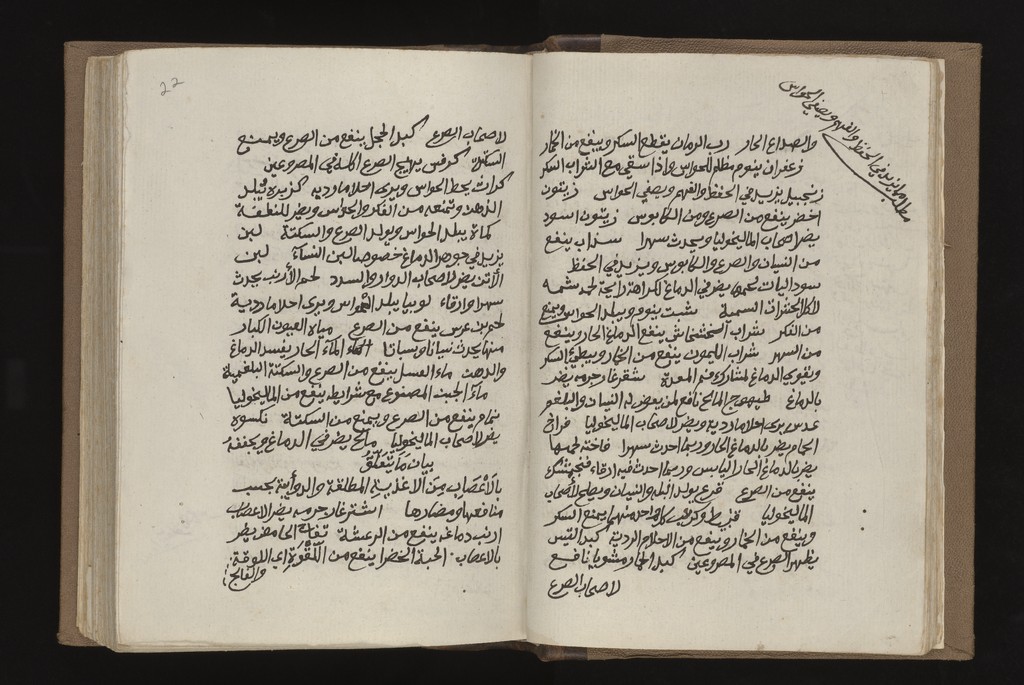 والصداع الحار رب الرمان يقطع السكر وينفع من الخمار
زعفران ينوم مظلم للحواس واذا سقي مع الشراب اسكر
زنجبيل يزيد في الحفظ والفهم ويصفي الحواس زيتون
اخضر ينفع من الصرع ومن الكابوس زيتون اسود
يضر اصحاب الماليخوليا ويحدث سهرا سذاب ينفع
من النسيان والصرع والكابوس ويزيد في الحفظ
سودانيات لحمها يضر في الدماغ لكراهة رايحة لحمه شمه
لاكلها الحشرات السمية شبت ينوم ويبلد الحواس ويمنع
من الفكر شراب الخشخاش ينفع الدماغ الحار وينفع
من السهر شراب الليمون ينفع من الخمار ويبطئ السكر
ويقوي الدماغ لمشاركة فم المعدة شقرغار جرمه يضر
بالدماغ طيهوج المالح نافع لمن يعرض له النسيان والبلغم
عدس يري احلاما ردية ويضر لاصحاب الماليخوليا فراخ
الحمام يضر بالدماغ الحار وربما احدث سهرا فاختة لحمها
يضر بالدماغ الحار اليابس وربما احدث فيه ارقاء فنجمشك
ينفع من الصرع قرع يولد البله والنسيان ويصلح لاصحاب
الماليخوليا قنبيط وكرنب كل واحد منهما يمنع السكر
وينفع من الخمار وينفع من الاحلام الردية كبد التيس
يظهر الصرع في المصروعين كبد الحمار مشويا نافع
لاصحاب الصرع
مطلب ما يزيد في الحفظ والفهم ويصفي الحواس
22
لاصحاب الصرع كبد الحجل ينفع من الصرع ويمنع
السكتة كرفس يهيج الصرع اكله في المصروعين
كراث يحط الحواس ويري احلاما ردية كزبرة تبلد
الذهن وتمنعه من الفكر والحواس ويضر للنطفة
كماة يبلد الحواس ويولد الصرع والسكتة لبن
يزيد في جوهر الدماغ خصوصا لبن النسآء لبن
الأتن يضر لاصحاب الدوار والسدد لحم الأرنب يحدث
سهرا وارقاء لوبيا يبلد الحواس ويري احلاما ردية
لحم بن عرس ينفع من الصرع مياه العيون الكبار
منها يحدث نسيانا وسباتا المآء الحار يفسد الدماغ
والذهن ماء العسل ينفع من الصرع والسكتة البلغمية
مآء الجبن المصنوع مع شرابطه ينفع من الماليخوليا
نمام ينفع من الصرع ويمنع من السكتة نكسوه
يضر لاصحاب الماليخوليا مالح يضر في الدماغ ويجففه
بيان مَا يَتَعَلَّقُ
بالأَعْصَاب مِنَ الاغذية المطلقة والدوائية بحسب
منافعها ومضارها اشترغار جرمه يضر الاعصاب
ارنب دماغه ينفع من الرعشة تفاح الحامض يضر
بالاعصاب الحبة الخضرا ينفع من اللّقوة اي اللوقة
والفالج